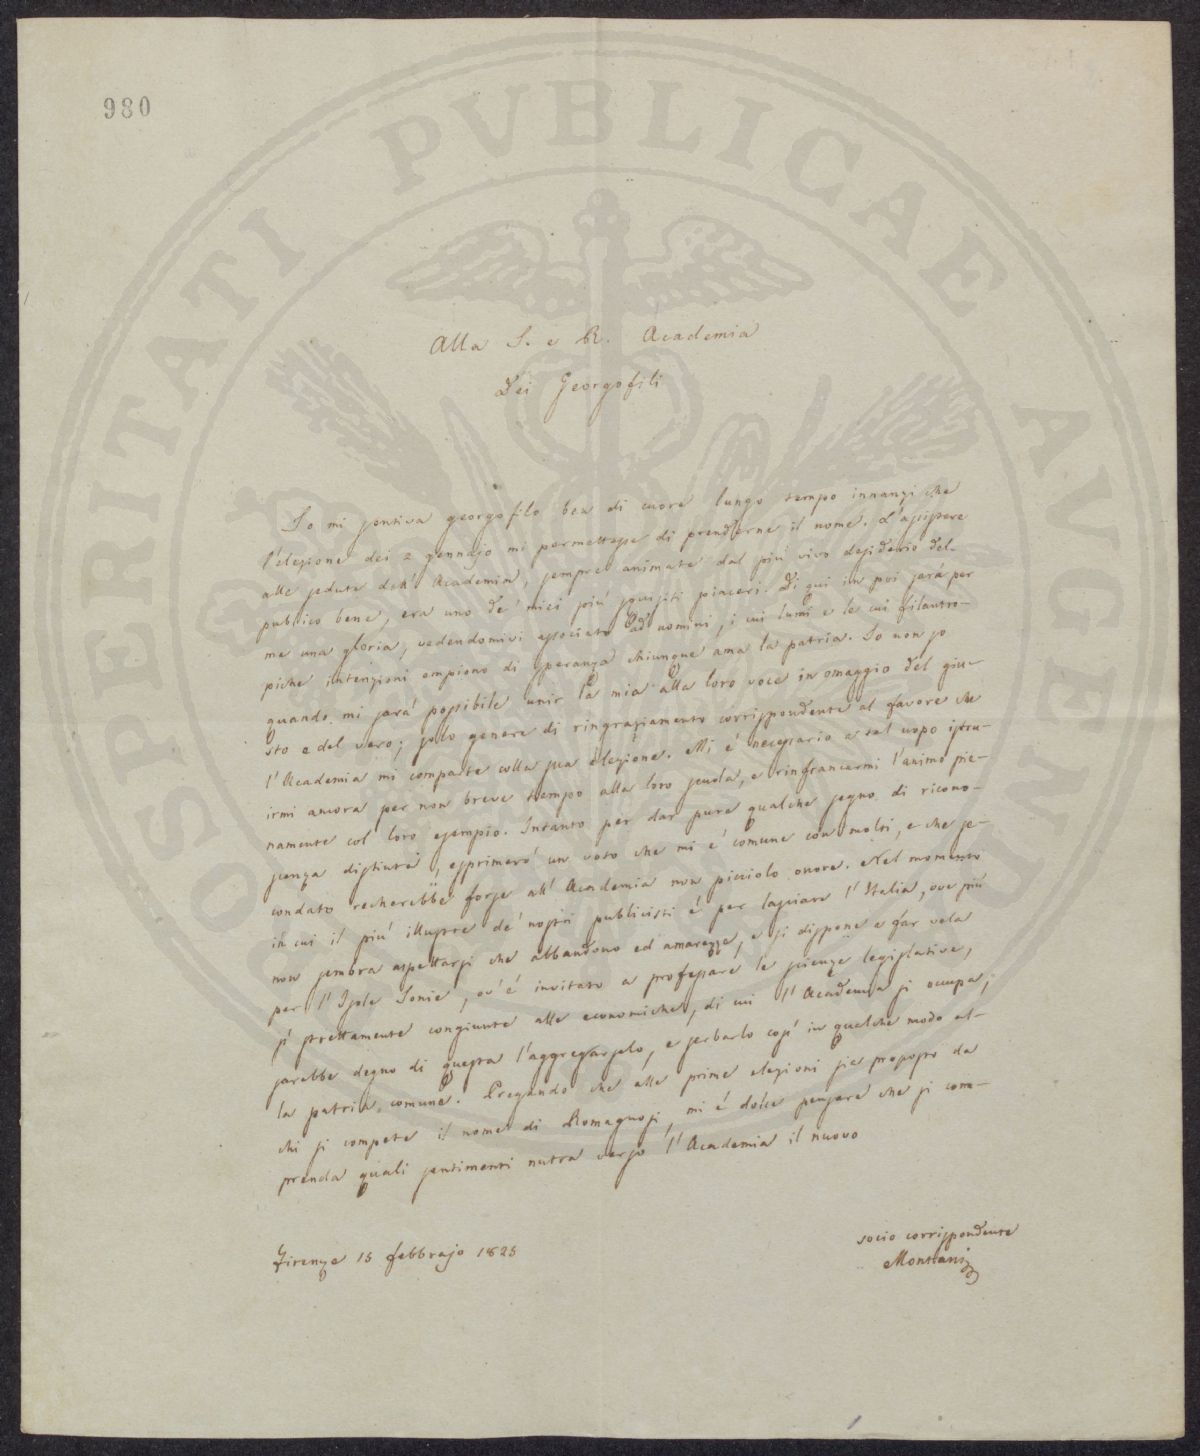 980
PROSPERITATI PVBLICAE AVGENDAE
Alla I. e R. Academia
Dei Georgofili
Io mi sentiva georgofilo ben di cuore lungo tempo innanzi che
l'elezione dei 2 gennajo mi permettesse di prenderne il nome. L'assistere
alle sedute dell' Academia, sempre animate dal più vivo desiderio del
publico bene, era uno de' miei più squisiti piaceri. Di qui in poi sarà per
me una gloria, vedendomivi associato ad uomini, i cui lumi e le cui filantro-
piche intenzioni empiono di speranza chiunque ama la patria. Io non so
quando mi sarà possibile unir la mia alla loro voce in omaggio del giu-
sto e del vero; solo genere di ringraziamento corrispondente al favore che
l'Academia mi comparte colla sua elezione. Mi è necessario a tal uopo istru-
irmi ancora per non breve tempo alla loro scuola, e rinfrancarmi l'animo pie-
namente col loro esempio. Intanto per dar pure qualche segno di ricono-
scenza distinta, esprimerò un voto che mi è comune con molti, e che se-
condato recherebbe forse all' Academia non picciolo onore. Nel momento
in cui il più illustre de' nostri publicisti è per lasciare l'Italia, ove più
non sembra aspettarsi che abbandono ed amarezze, e si dispone a far vela
per l'Isole Jonie, ov'è invitato a professare le scienze legislative,
sì strettamente congiunte alle economiche, di cui l'Academia si occupa;
sarebbe degno di questa l'aggregarselo, e serbarlo così in qualche modo al-
la patria comune. Pregando che alle prime elezioni sia proposto da
chi si compete il nome di Romagnosi, mi è dolce pensare che si com-
prenda quali sentimenti nutra verso l'Academia il nuovo
socio corrispondente
Montani
Firenze 15 febbrajo 1825